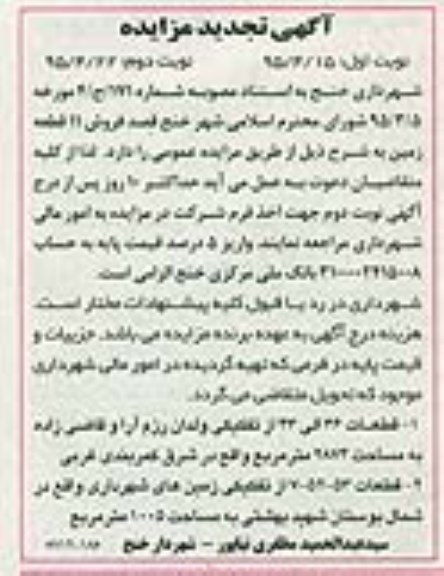 آگهی تجدید مزایده
نوبت اول: ۹۵/۴/۱۵ نوبت دوم: ۹۵/۴/۲۲
شهرداری خنج به استناد مصوبه شماره ۱۷۱/ج/۴ مورخه
۹۵/۳/۵ شورای محترم اسلامی شهر خنج قصد فروش ۱۱ قطعه
زمین به شرح ذیل از طریق مزایده عمومی را دارد. لذا از کلیه
متقاضیان دعوت به عمل می آید حداکثر ۱۰ روز پس از درج
آگهی نوبت دوم جهت اخذ فرم شرکت در مزایده به امور مالی
شهرداری مراجعه نمایند. واریز ۵ درصد قیمت پایه به حساب
بانک ملی مرکزی خنج الزامی است.
شهرداری در رد یا قبول کلیه پیشنهادات مختار است.
هزینه درج آگهی به عهده برنده مزایده می باشد. جزییات و
قیمت پایه در فرمی که تهیه گردیده در امور مالی شهرداری
موجود که تحویل متقاضی می گردد.
۱- قطعات ۳۶ الی ۴۳ از تفکیکی ولدان رزم آرا و قاضی زاده
به مساحت ۲۸۷۳ متر مربع واقع در شرق کمربندی غربی
۲- قطعات ۵۳-۵۴-۷ از تفکیکی زمین های شهرداری واقع در
شمال بوستان شهید بهشتی به مساحت ۱۰۰۵ متر مربع
سیدعبدالحمید مظفری نیاپور - شهردار خنج